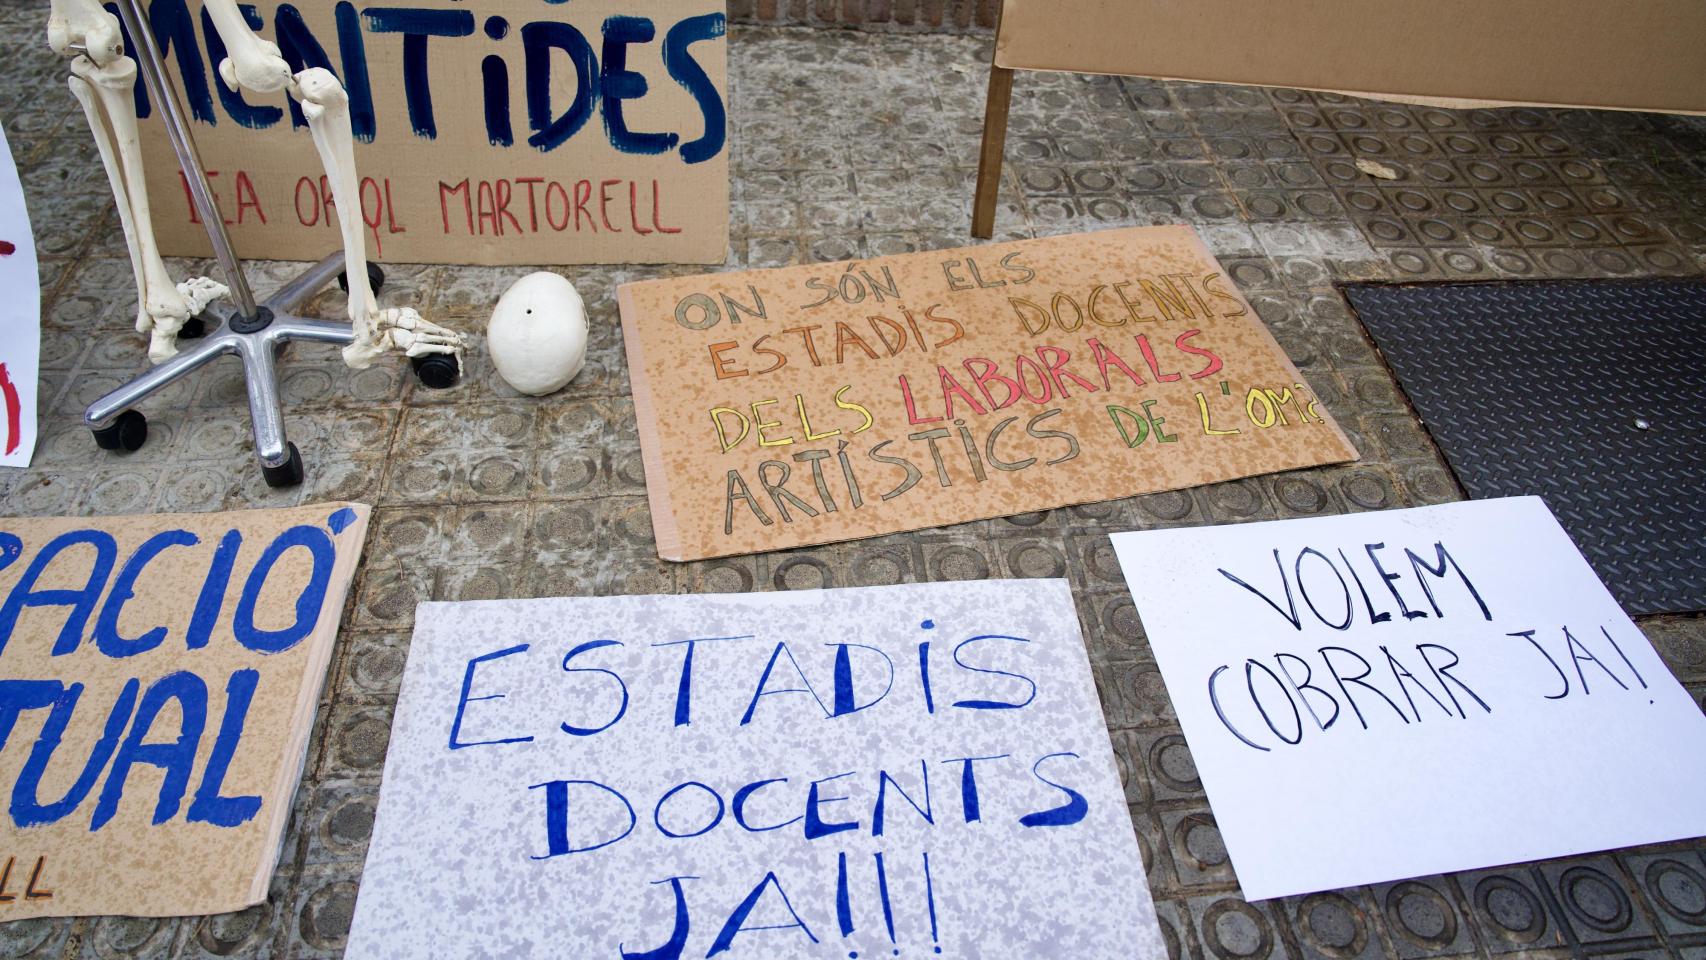 MENTiDES
EEA ORIOL MARTORELL
ON SÓN ELS
ESTADIS DOCENTS
DELS LABORALS
ARTÍSTICS DE L'OM?
ACIÓ
TUAL
LL
ESTADiS
DOCENTS
JA!!!
VOLEM
COBRAR JA!